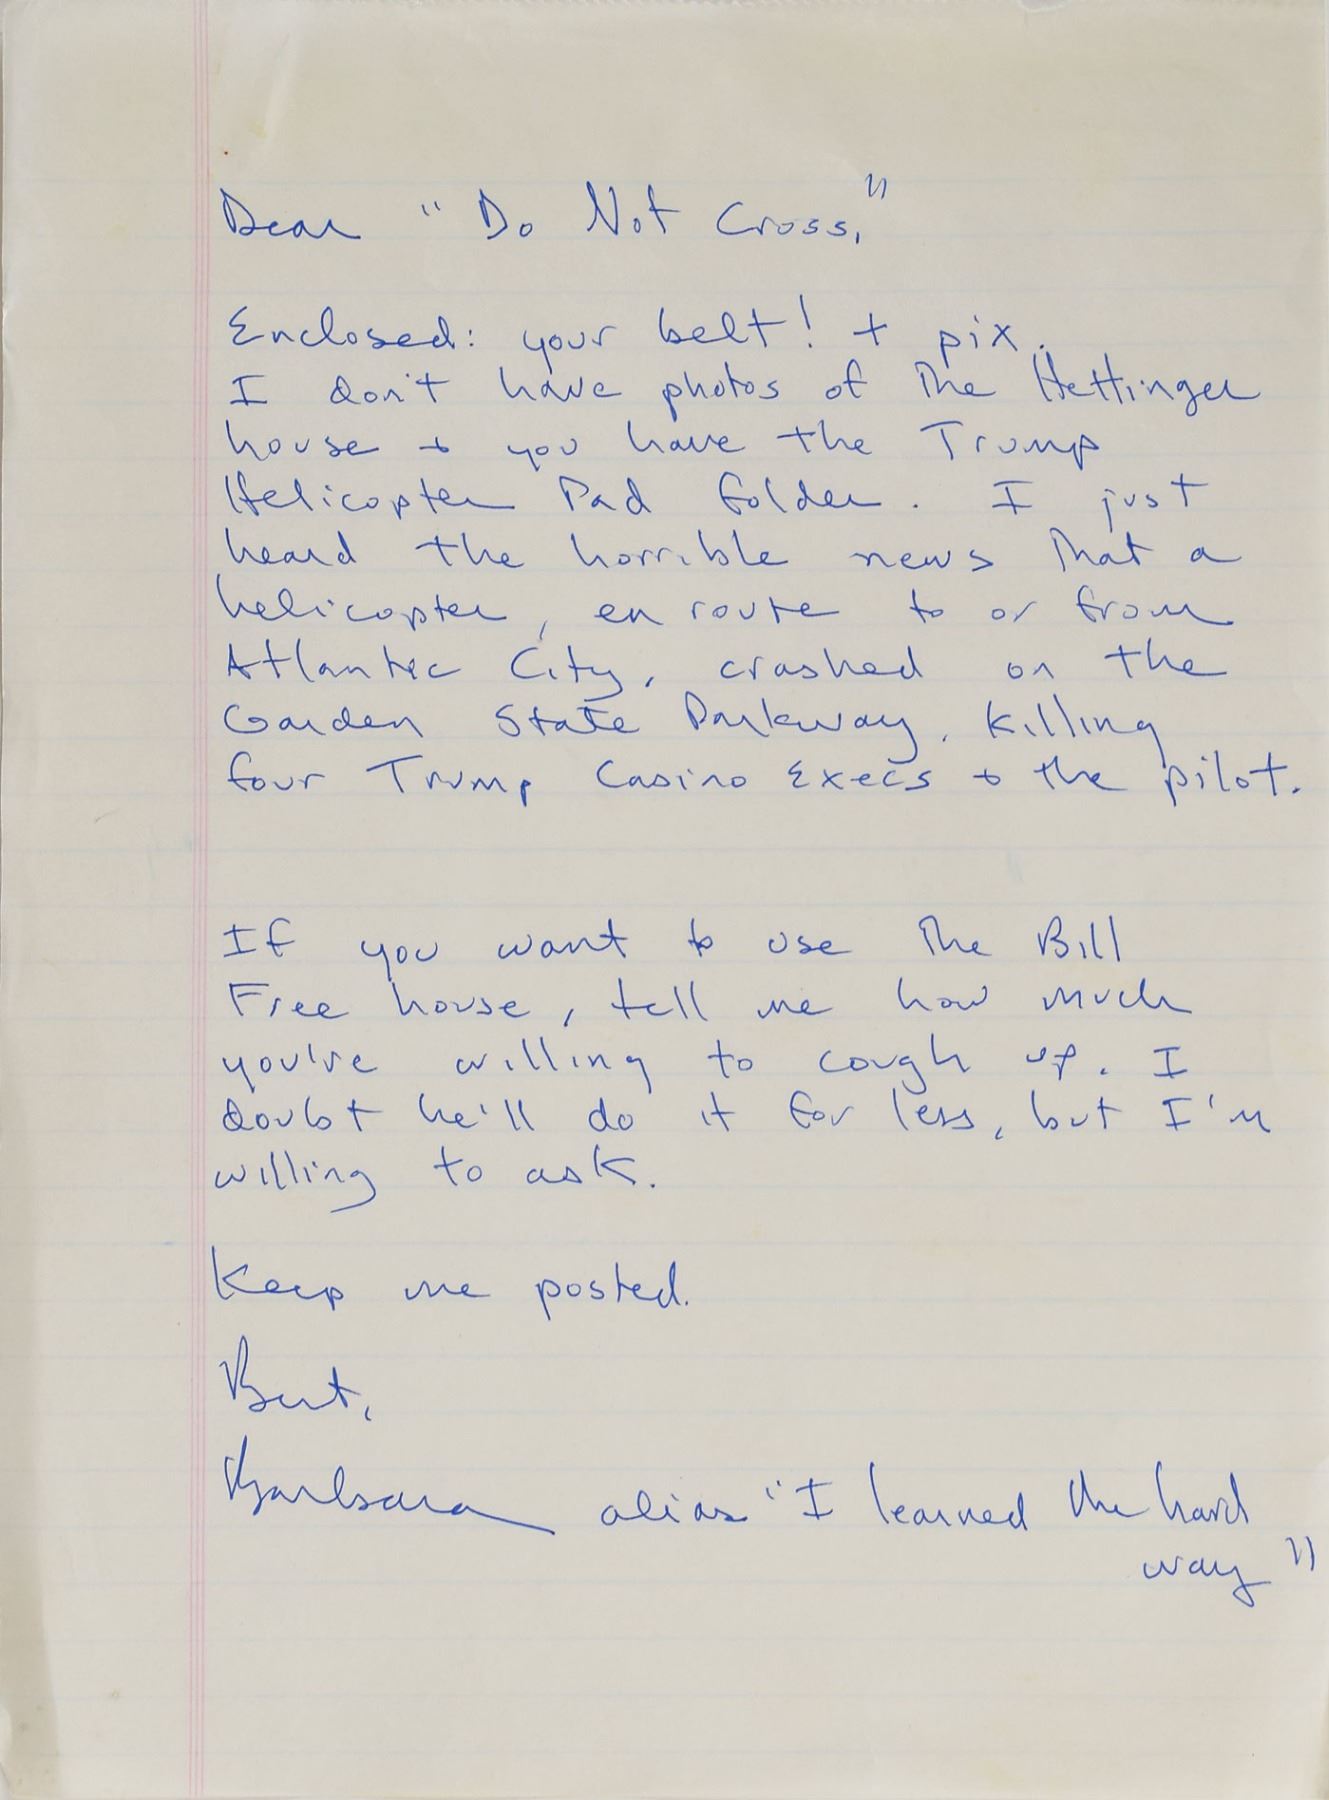 Dear "Do Not Cross,"
Enclosed: your belt! + pix.
I don't have photos of the Hettinger
house + you have the Trump
Helicopter Pad folder. I just
heard the horrible news that a
helicopter, en route to or from
Atlantic City, crashed on the
Garden State Parkway, killing
four Trump Casino Execs + the pilot.
If you want to use the Bill
Free house, tell me how much
you're willing to cough up. I
doubt he'll do it for less, but I'm
willing to ask.
Keep me posted.
Best,
Barbara alias "I learned the hard
way"